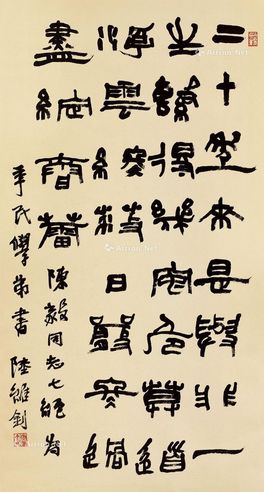 二十年來是與非一
生繫得幾安危莫道
浮雲終蔽日嚴冬過
盡綻春蕾 陳毅同志七絕為
季民學弟書 陸維釗